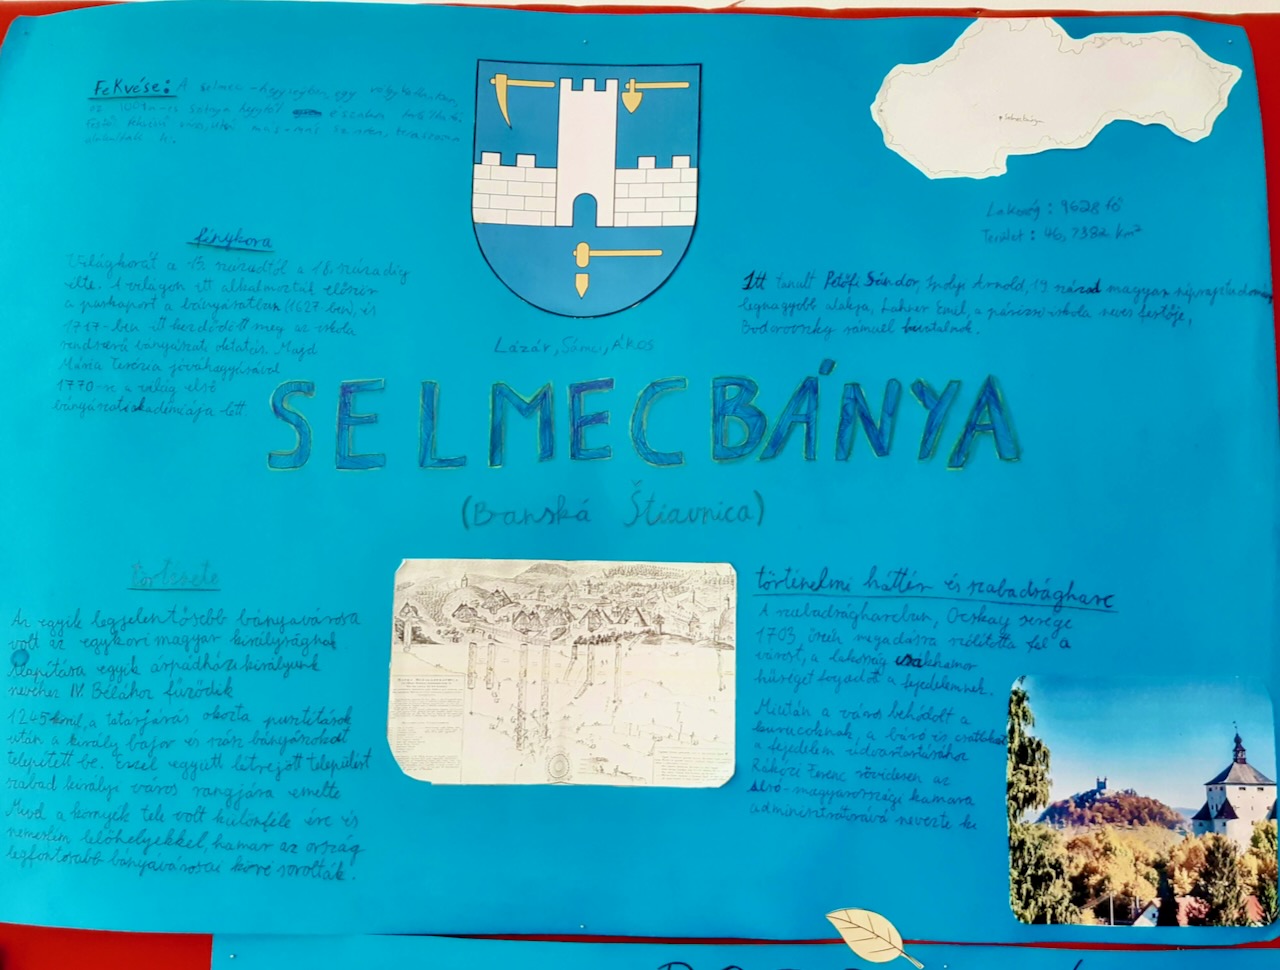 Fekvése: A selmeci-hegységben, egy völgykatlanban,
az 1009 m-es
festői fekvésű város,
alakultak ki.
Selmecbánya
Lakosság: 9628 fő
Terület: 46,7382 km²
fénykora
Világkorát a 15. századtól a 18. századig
élte. A világon itt alkalmaztak először
a puskaport a bányászatban (1627-ben), és
1717-ben itt kezdődött meg az iskola
rendszerű bányászati oktatás. Majd
Mária Terézia jóváhagyásával
1770-re a világ első
bányászati akadémiája lett.
Itt tanult Petőfi Sándor, Ipolyi Arnold, 19 század magyar néprajztudomány
legnagyobb alakja, Lahner Emil, a párizsi iskola neves festője,
Bodorovszky Sámuel
Lázár, Samu, Ákos
SELMECBÁNYA
(Banská Štiavnica)
története
Az egyik legjelentősebb bányavárosa
volt az egykori magyar királyságnak
Alapítása egyik árpádházi királyunk
nevéhez IV. Bélához fűződik
1245 körül, a tatárjárás okozta pusztítások
után a király bajor és szász bányászokat
telepített be. Ezzel együtt létrejött települést
szabad királyi város rangjára emelte
Mivel a környék tele volt különféle érc és
nemesfém lelőhelyekkel, hamar az ország
legfontosabb bányavárosai közé sorolták.
történelmi háttér és szabadságharc
A szabadságharcban, Ocskay serege
1703 őszén megadásra szólította fel a
várost, a lakosság csakhamar
hűséget fogadott a fejedelemnek.
Miután a város behódolt a
kurucoknak, a báró is csatlakozott
a fejedelem udvartartásához
Rákózi Ferenc rövidesen az
alsó-magyarországi kamara
adminisztrátorává nevezte ki